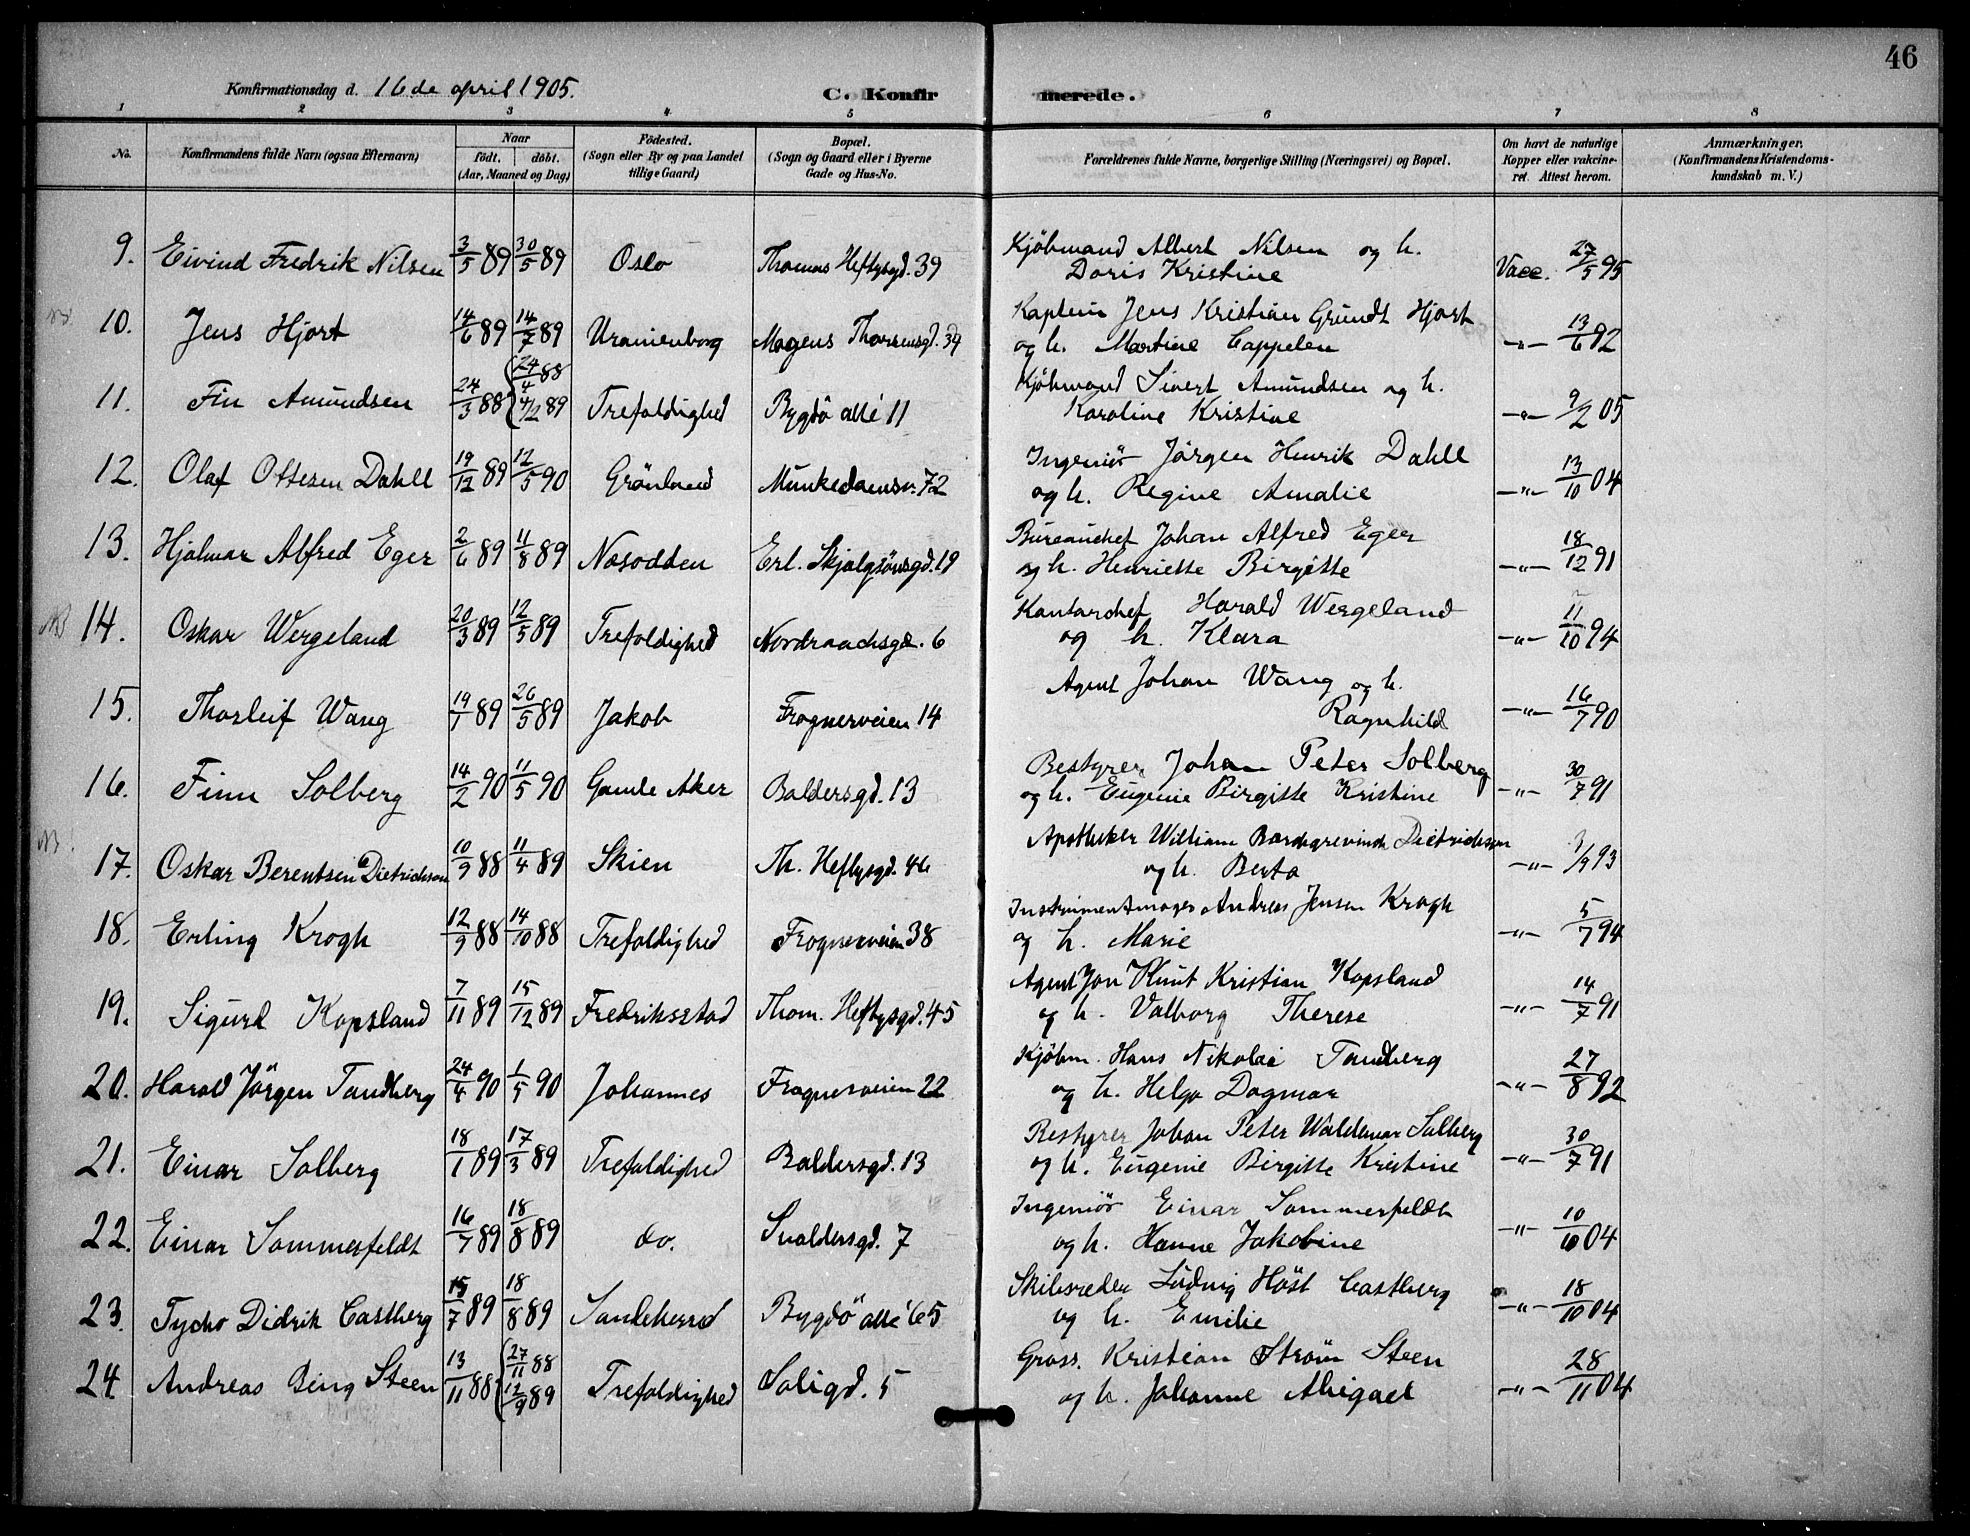 46
Konfirmationsdag d. 16de april 1905.
C. Konfirmerede.
1 2 3 4 5 6 7 8
No. Konfirmandens fulde Navn (ogsaa Efternavn) Naar födt. döbt. (Aar, Maaned og Dag) Födested. (Sogn eller By og paa Landet tillige Gaard) Bopæl. (Sogn og Gaard eller i Byerne Gade og Hus-No. Forældrenes fulde Navne, borgerlige Stilling (Næringsvei) og Bopæl. Om havt de naturlige Kopper eller vakcineret. Attest herom. Anmærkninger. (Konfirmandens Kristendomskundskab m. V.)
9. Eivind Fredrik Nilsen 3/5 89 30/5 89 Oslo Thomas Heftysgd. 39 Kjöbmand Albert Nilsen og h.
Doris Kristine Vacc. 27/5 95
10. Jens Hjort 14/6 89 14/7 89 Uranienborg Mogens Thorsensgd. 39 Kaptein Jens Kristian Grundt Hjort
og h. Martine Cappelen -"- 13/6 92
11. Fin Amundsen 24/3 88 24/4 88 4/12 89 Trefoldighed Bygdö allé 11 Kjöbmand Sivert Amundsen og h.
Karoline Kristine -"- 9/2 05
12. Olaf Ottesen Dahll 19/12 89 12/5 90 Grönland Munkedamsv. 72 Ingeniör Jörgen Henrik Dahll
og h. Regine Amalie -"- 13/10 04
13. Hjalmar Alfred Eger 2/6 89 11/8 89 Nesodden Erl. Skjalgsönsgd. 19 Bureauchef Johan Alfred Eger
og h. Henriette Birgitte -"- 18/12 91
NB 14. Oskar Wergeland 20/3 89 12/5 89 Trefoldighed Nordraachsgd. 6 Kontorchef Harald Wergeland
og h. Klara -"- 11/10 94
15. Thorleif Wang 19/1 89 26/5 89 Jakob Frognerveien 14 Agent Johan Wang og h.
Ragnhild -"- 16/7 90
16. Finn Solberg 14/2 90 11/5 90 Gamle Aker Baldersgd. 13 Bestyrer Johan Peter Solberg
og h. Eugenie Birgitte Kristine -"- 30/7 91
17. Oskar Berentsen Dietrichson 10/9 88 11/4 89 Skien Th. Heftysgd. 46 Apotheker William Dietrichson
og h. Berta -"- /9 93
18. Erling Krogh 12/9 88 14/10 88 Trefoldighed Frognerveien 38 Instrumentmager Andreas Jensen Krogh
og h. Marie -"- 5/7 94
19. Sigurd Kopsland 7/11 89 15/12 89 Fredriksstad Thom. Heftysgd. 45 Agent Jon Knut Kristian Kopsland
og h. Valborg Therese -"- 14/7 91
20. Harald Jörgen Tandberg 24/4 90 1/5 90 Johannes Frognerveien 22 Kjöbm. Hans Nikolai Tandberg
og h. Helga Dagmar -"- 27/8 92
21. Einar Solberg 18/1 89 17/3 89 Trefoldighed Baldersgd. 13 Bestyrer Johan Peter Waldemar Solberg
og h. Eugenie Birgitte Kristine -"- 30/7 91
22. Einar Sommerfeldt 16/7 89 18/8 89 do. Svoldersgd. 7 Ingeniör Einar Sommerfeldt
og h. Hanne Jakobine -"- 10/10 04
23. Tycho Didrik Castberg 15/7 89 18/8 89 Sandeherred Bygdö allé 65 Skibsreder Ludvig Höst Castberg
og h. Emilie -"- 18/10 04
24 Andreas Bing Steen 13/11 88 27/11 88 12/9 89 Trefoldighed Soligd. 5 Gross. Kristian Ström Steen
og h. Johanne Abigael -"- 28/11 04